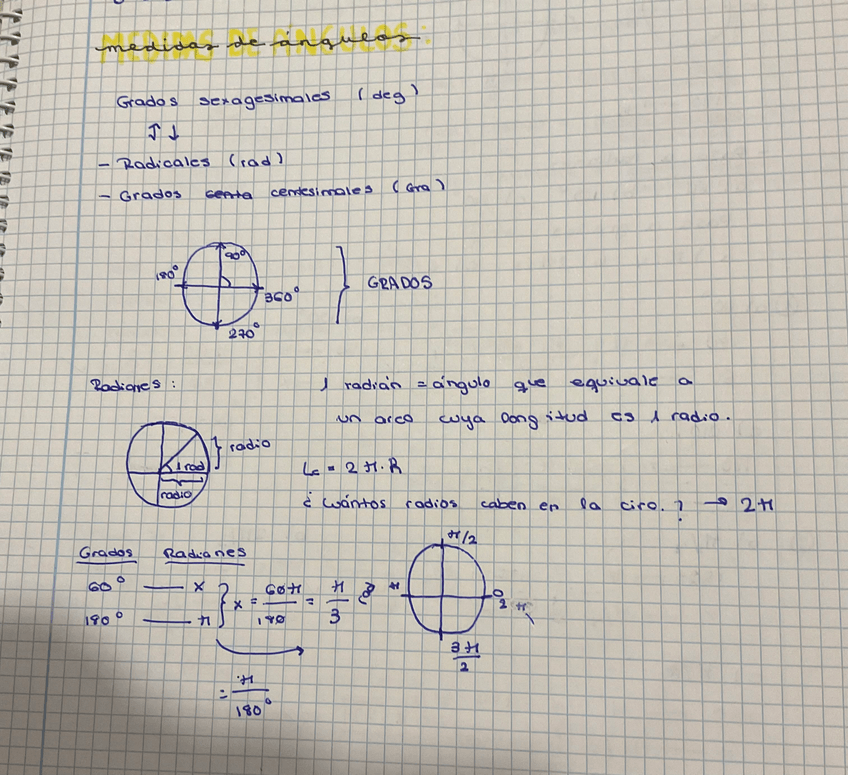 medidas de ángulos:
Grados sexagesimales (deg)
↑↓
- Radicales (rad)
- Grados centa centesimales (Gra)
90º
180º
360º
270º
GRADOS
Radianes:
1 radián = ángulo que equivale a
un arco cuya longitud es 1 radio.
radio
1 rad
radio
Lc = 2π·R
¿Cuántos radios caben en la circ.? → 2π
Grados Radianes
60º — x
180º — π
x = 60π/180 = π/3
= π/180º
π/2
π
0
2π
3π/2